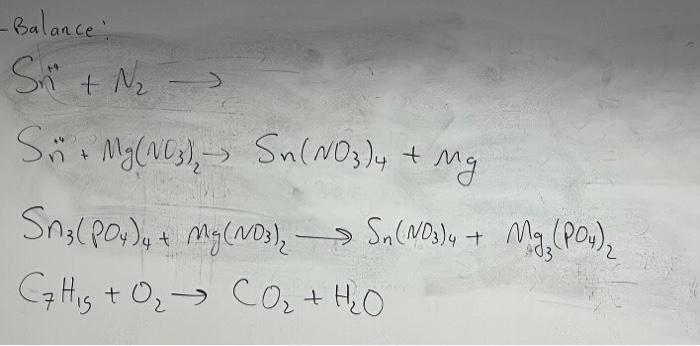 - Balance:
Sn⁺⁴ + N₂ →
Sn⁺⁴ + Mg(NO₃)₂ → Sn(NO₃)₄ + Mg
Sn₃(PO₄)₄ + Mg(NO₃)₂ → Sn(NO₃)₄ + Mg₃(PO₄)₂
C₇H₁₅ + O₂ → CO₂ + H₂O